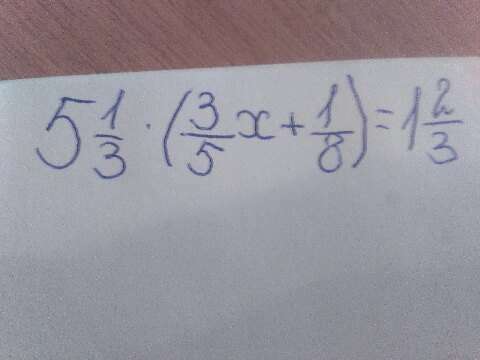 5 1/3 · (3/5 x + 1/8) = 1 2/3